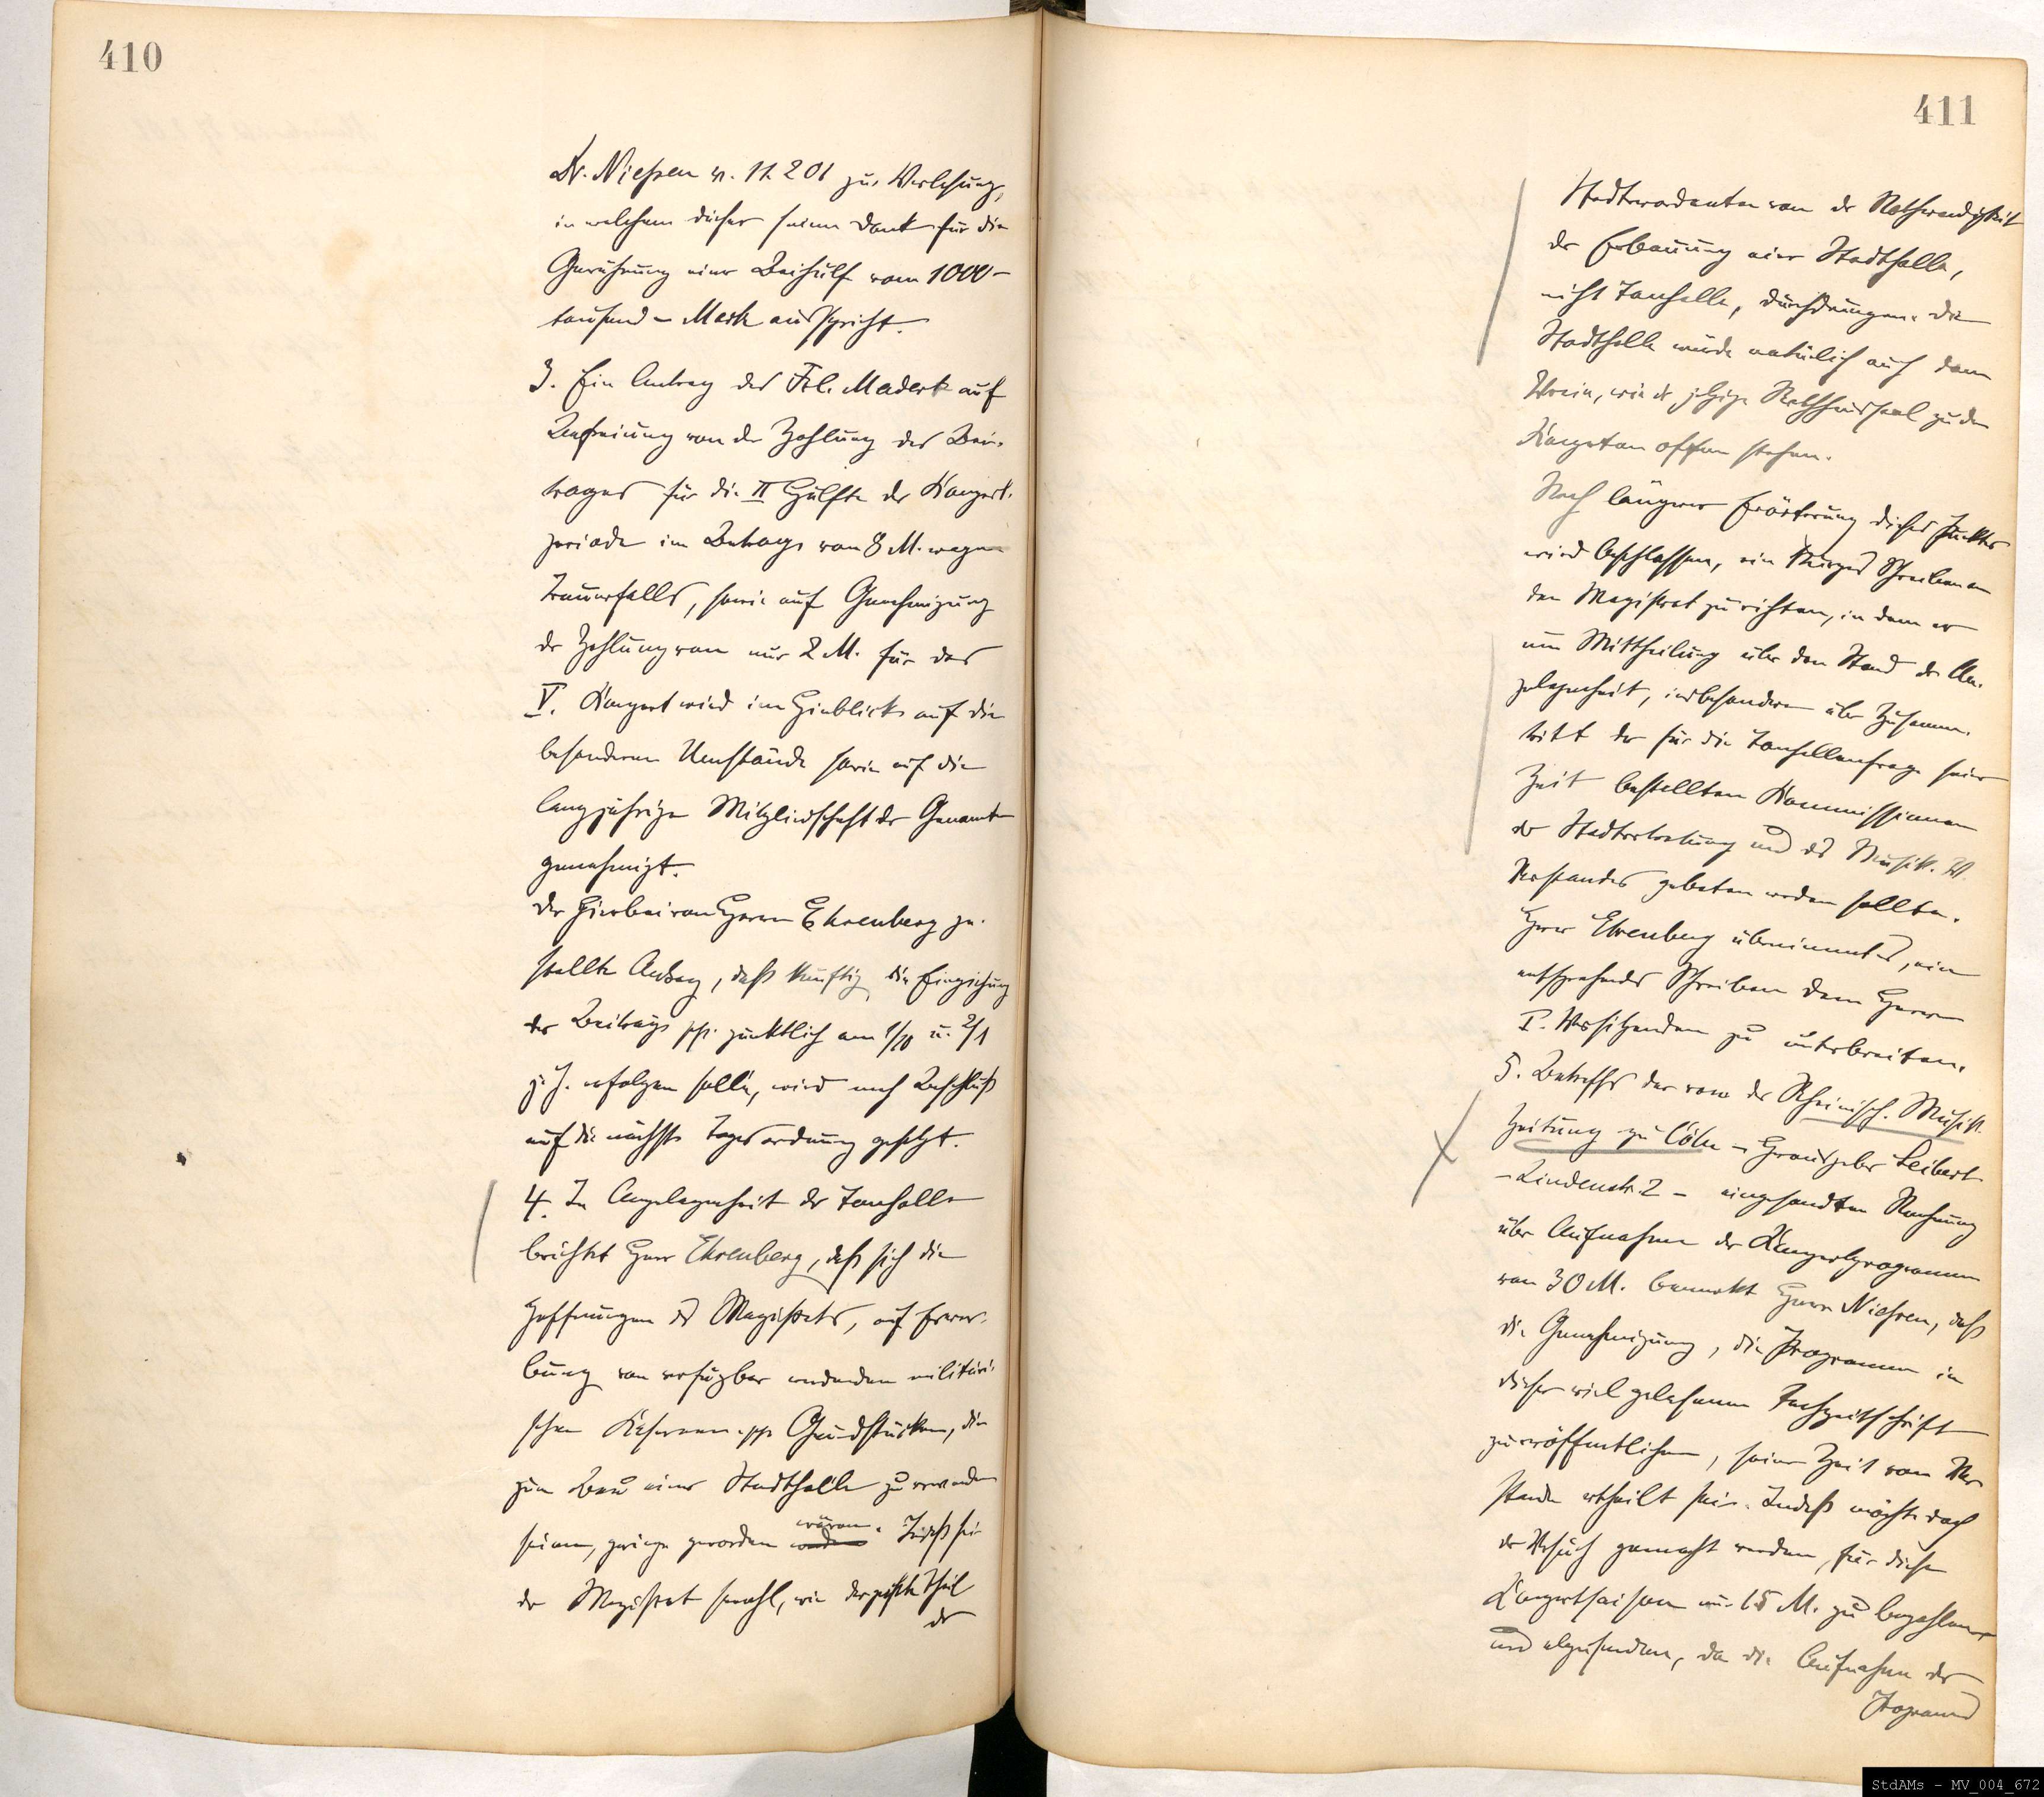 410
Dr. Nießen v. 11. 2 01 zur Verlesung,
in welchem dieser seinen Dank für die
Gewährung einer Beihülfe vom 1000 -
tausend - Mark ausspricht.
3. Ein Antrag des Frl. Maderk auf
Befreiung von der Zahlung des Bei-
trages für die II Hälfte der Konzert-
periode im Betrage von 8 M. wegen
Trauerfalls, sowie auf Genehmigung
der Zahlung von nur 2 M. für das
V. Konzert wird im Hinblick auf die
besonderen Umstände sowie auf die
langjährige Mitgliedschaft der Genannten
genehmigt.
Der hierbei von Herrn Ehrenberg ge-
stellte Antrag, daß künftig die Einziehung
der Beiträge pp. pünktlich am 1/10 u. 2/1
j. J. erfolgen solle, wird nach Beschluß
auf die nächste Tagesordnung gesetzt.
4. In Angelegenheit der Tonhalle
berichtet Herr Ehrenberg, daß sich die
Hoffnungen des Magistrats, auf Erwer-
bung von verfügbar werdenden militäri-
schen Kasernen pp Grundstücken, die
zum Bau einer Stadthalle zu verwenden
seien, geringe geworden wären. Indeß sei
der Magistrat sowohl, wie der größte Theil
der
411
Stadtverordneten von der Nothwendigkeit
der Erbauung einer Stadthalle,
nicht Tonhalle, durchdrungen. Die
Stadthalle würde natürlich auch dem
Verein, wie der jetzige Rathhaussaal zu den
Konzerten offen stehen.
Nach längerer Erörterung dieses Punktes
wird beschlossen, ein kurzes Schreiben an
den Magistrat zu richten, in dem er
um Mittheilung über den Stand der An-
gelegenheit, insbesondere über Zusammen-
tritt der für die Tonhallenfrage seiner
Zeit bestellten Kommissionen
der Stadtvertretung und des Musik. V.
Vorstandes gebeten werden sollte.
Herr Ehrenberg übernimmt es, ein
entsprechendes Schreiben dem Herrn
I. Vorsitzenden zu unterbreiten.
5. Betreffs der von der Rheinisch. Musik-
Zeitung zu Cöln - Herausgeber Seibert
- Lindenstr. 2 - eingesandten Rechnung
über Aufnahme der Konzertprogramme
von 30 M. bemerkt Herr Niessen, daß
die Genehmigung, die Programme in
dieser viel gelesenen Fachzeitschrift
zu veröffentlichen, seiner Zeit vom Vor
stande ertheilt sei. Indeß möchte doch
der Versuch gemacht werden, für diese
Konzertsaison nur 15 M. zu bezahlen
und abzusenden, da die Aufnahme der
Programme
StdAMs - MV_004_672